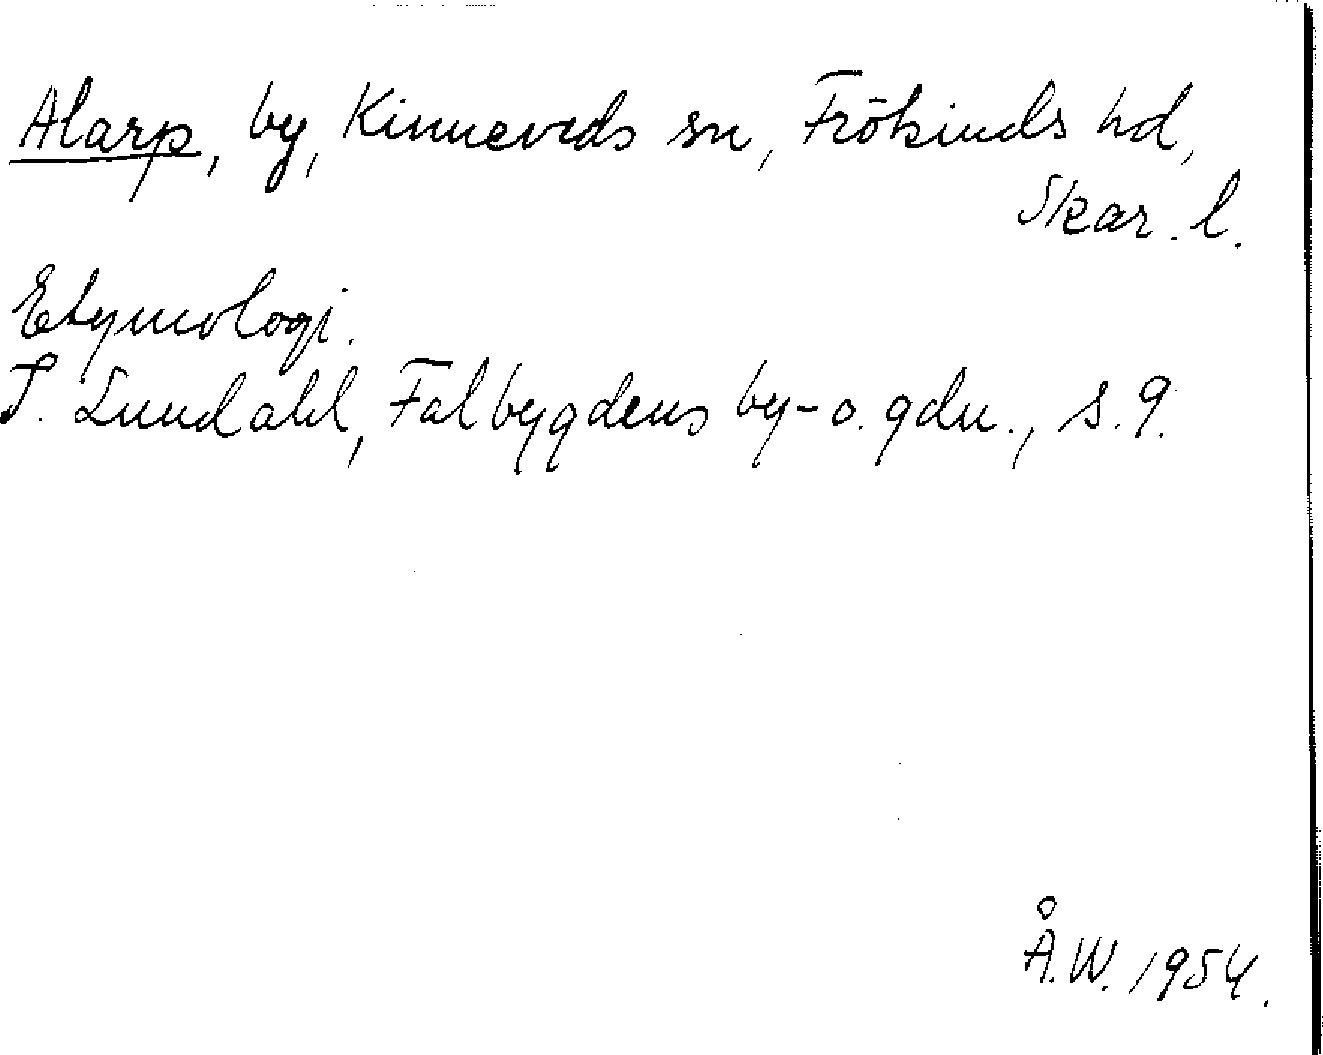 Alarp, by, Kinneveds sn, Frökinds hd,
Skar. l.
Etymologi.
I. Lundahl, Falbygdens by- o. gdn., s. 9.
Å.W. 1954.